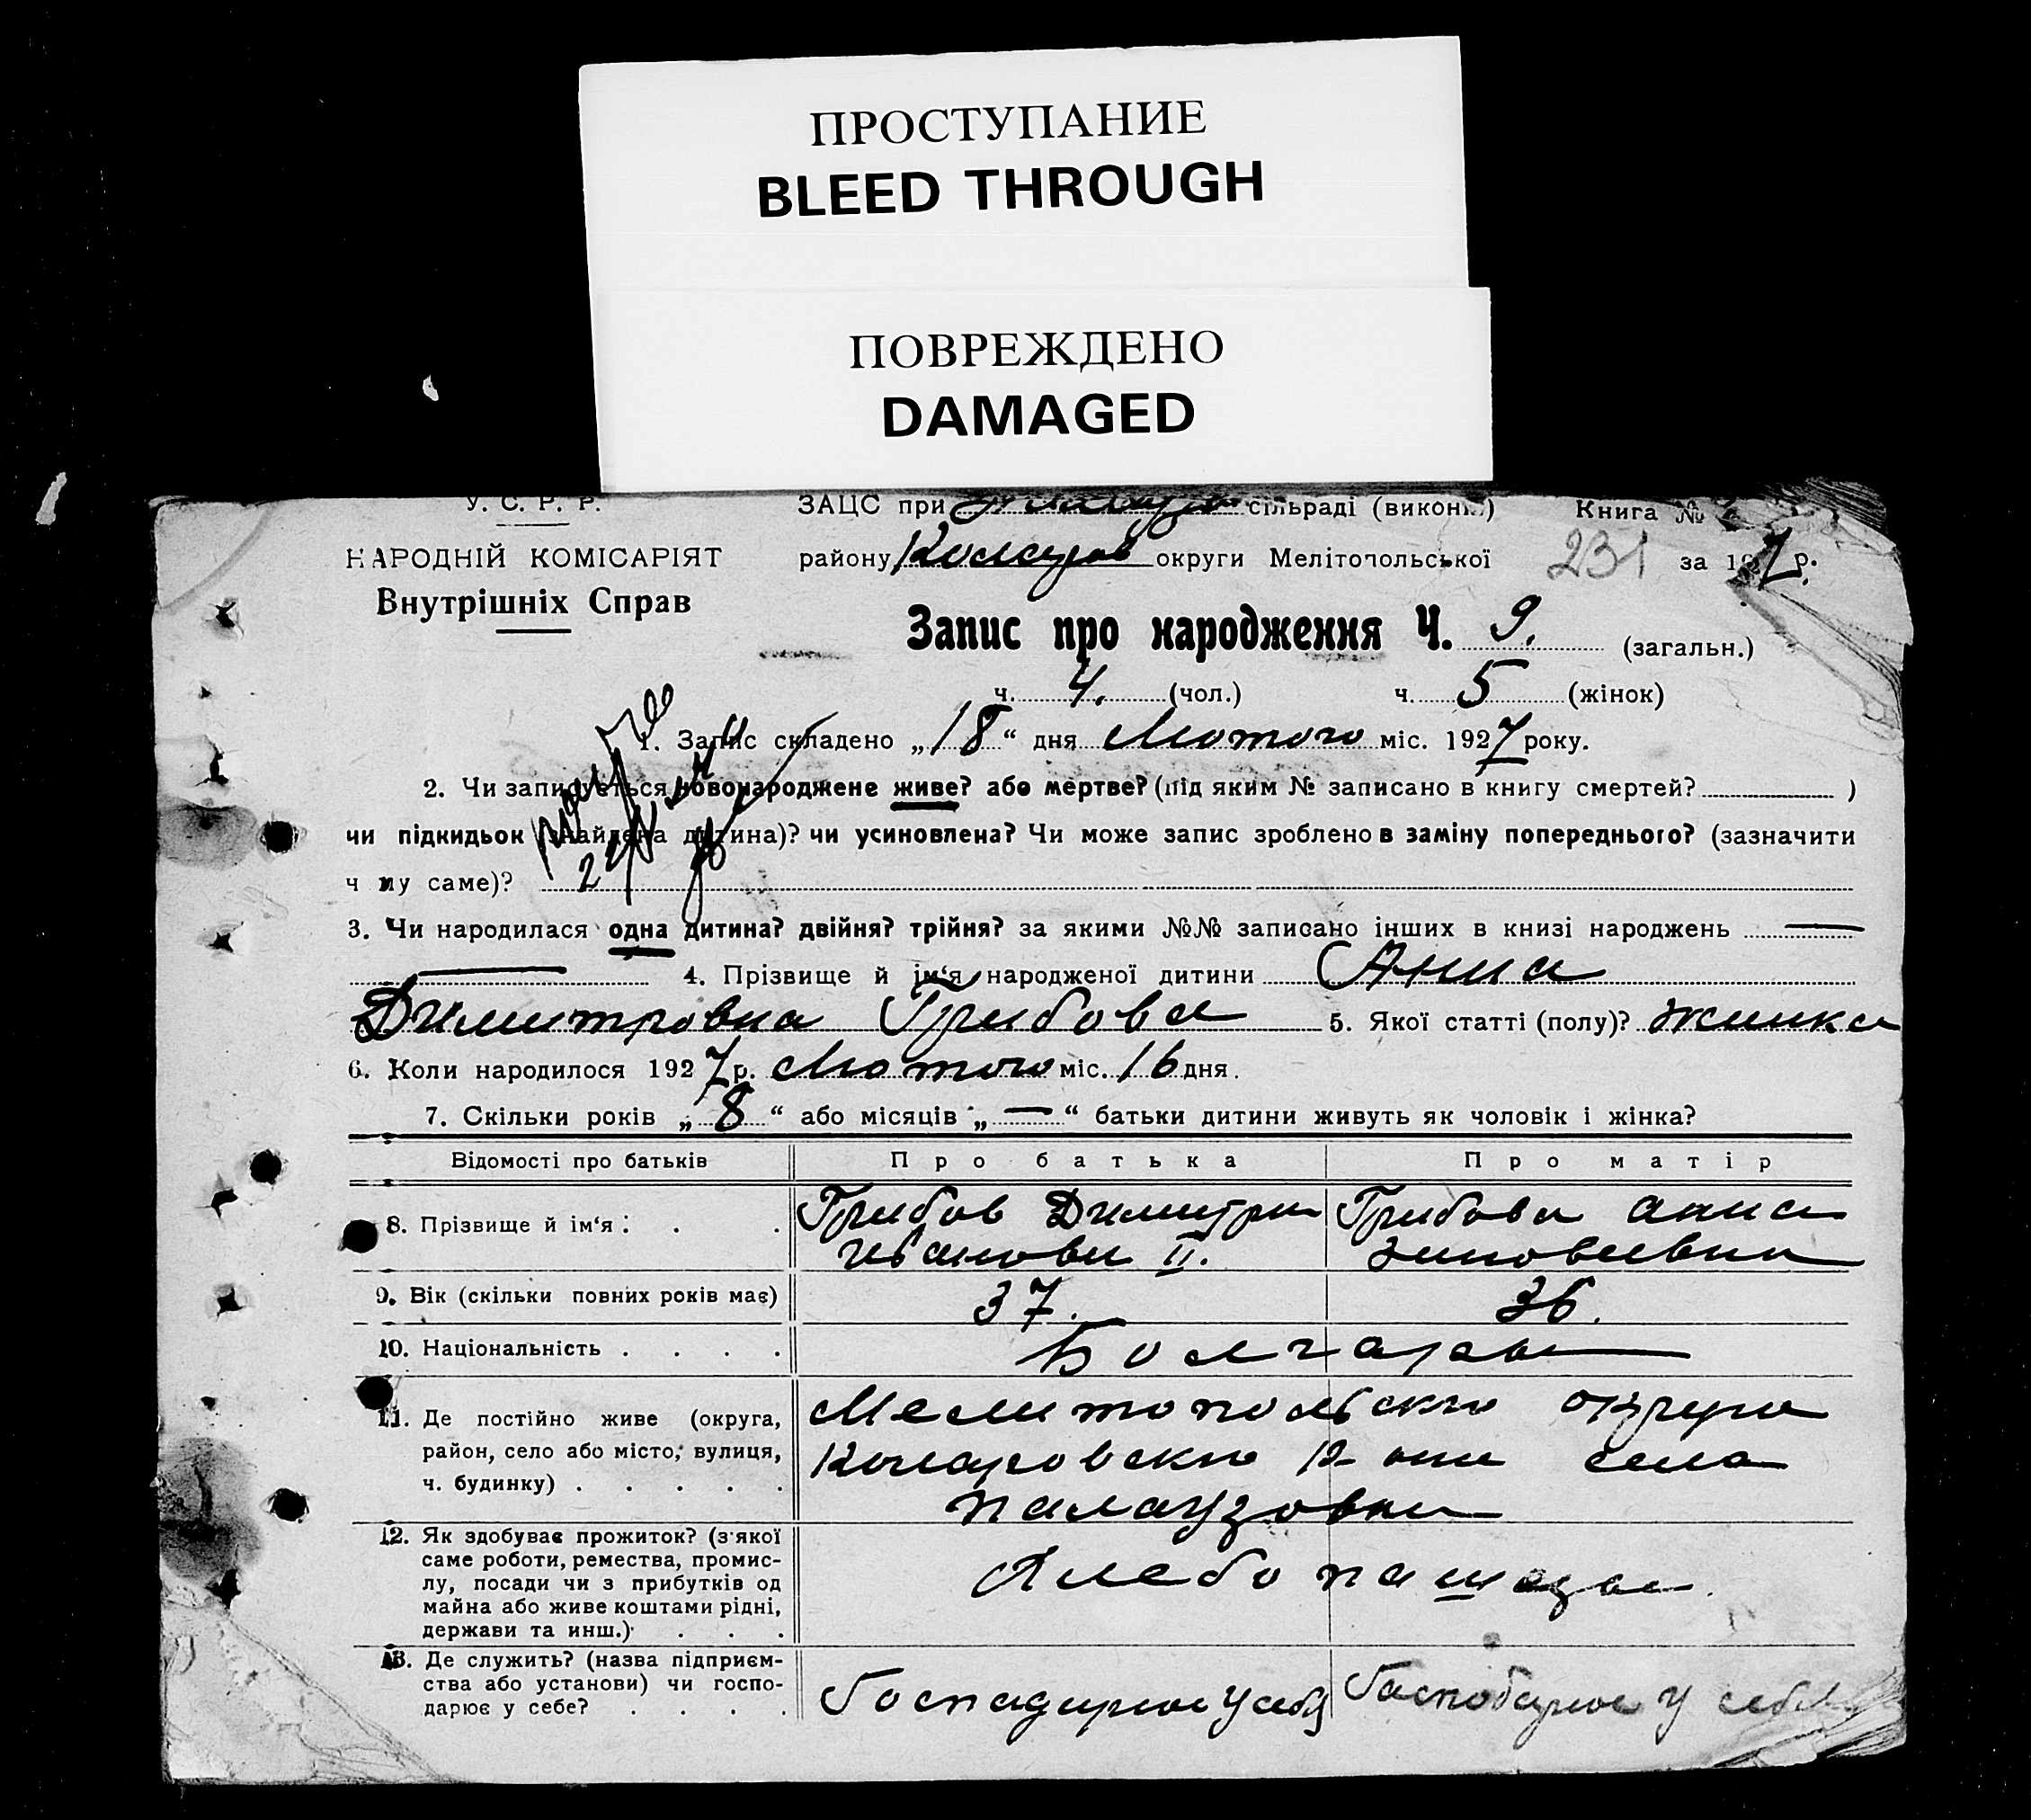 ПРОСТУПАНИЕ
BLEED THROUGH
ПОВРЕЖДЕНО
DAMAGED
У. С. Р. Р. ЗАЦС при сільраді (виконк.) Книга №
НАРОДНІЙ КОМІСАРІЯТ району Коларов округи Мелітопольської 231 за 1927 р.
Внутрішніх Справ
Запис про народження Ч. 9. (загальн.)
ч. 4. (чол.) ч. 5 (жінок)
1. Запис складено „18“ дня Лютого міс. 1927 року.
2. Чи записується новонароджене живе? або мертве? (під яким № записано в книгу смертей? )
чи підкидьок (знайдена дитина)? чи усиновлена? Чи може запис зроблено в заміну попереднього? (зазначити
чому саме)?
3. Чи народилася одна дитина? двійня? трійня? за якими №№ записано інших в книзі народжень —
— 4. Прізвище й ім‘я народженої дитини Анна
Димитровна Грибова 5. Якої статті (полу)? жинка
6. Коли народилося 1927 р. Лютого міс. 16 дня.
7. Скільки років „8“ або місяців „—“ батьки дитини живуть як чоловік і жінка?
Відомості про батьків Про батька Про матір
8. Прізвище й ім‘я: . . Грибов Димитри Грибова Анна
Иванови II. Зиновеевна
9. Вік (скільки повних років має) 37. 36.
10. Національність . . . . Болгары
11. Де постійно живе (округа, Мелитопольского округа
район, село або місто, вулиця, Коларовского р-она села
ч. будинку) . . . . . Палаузовки
12. Як здобуває прожиток? (з якої
саме роботи, ремества, промис-
лу, посади чи з прибутків од Хлебопашцы
майна або живе коштами рідні,
держави та инш.) . . .
13. Де служить? (назва підприєм-
ства або установи) чи госпо- Господарюе у себя Господарюе у себя
дарює у себе? . . . .